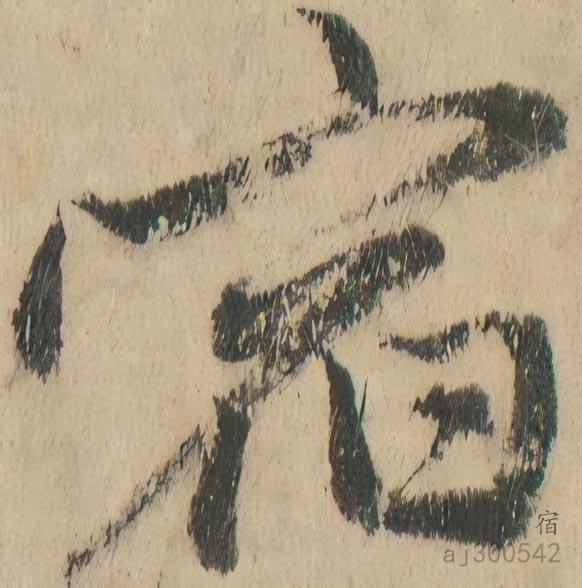 宿
宿
aj300542